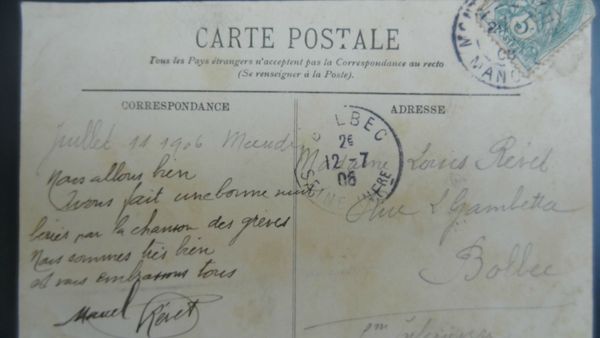 CARTE POSTALE
Tous les Pays étrangers n'acceptent pas la Correspondance au recto
(Se renseigner à la Poste).
CORRESPONDANCE
Juillet 11 1906 Mardi
Nous allons bien
Avons fait une bonne nuit
par la chanson des greves
Nous sommes très bien
et vous embrassons tous
Revet
BOLBEC
2E
12 -7
06
SEINE INFRE
ADRESSE
Madame Louis Revet
Rue L Gambetta
Bolbec
5
MANCHE